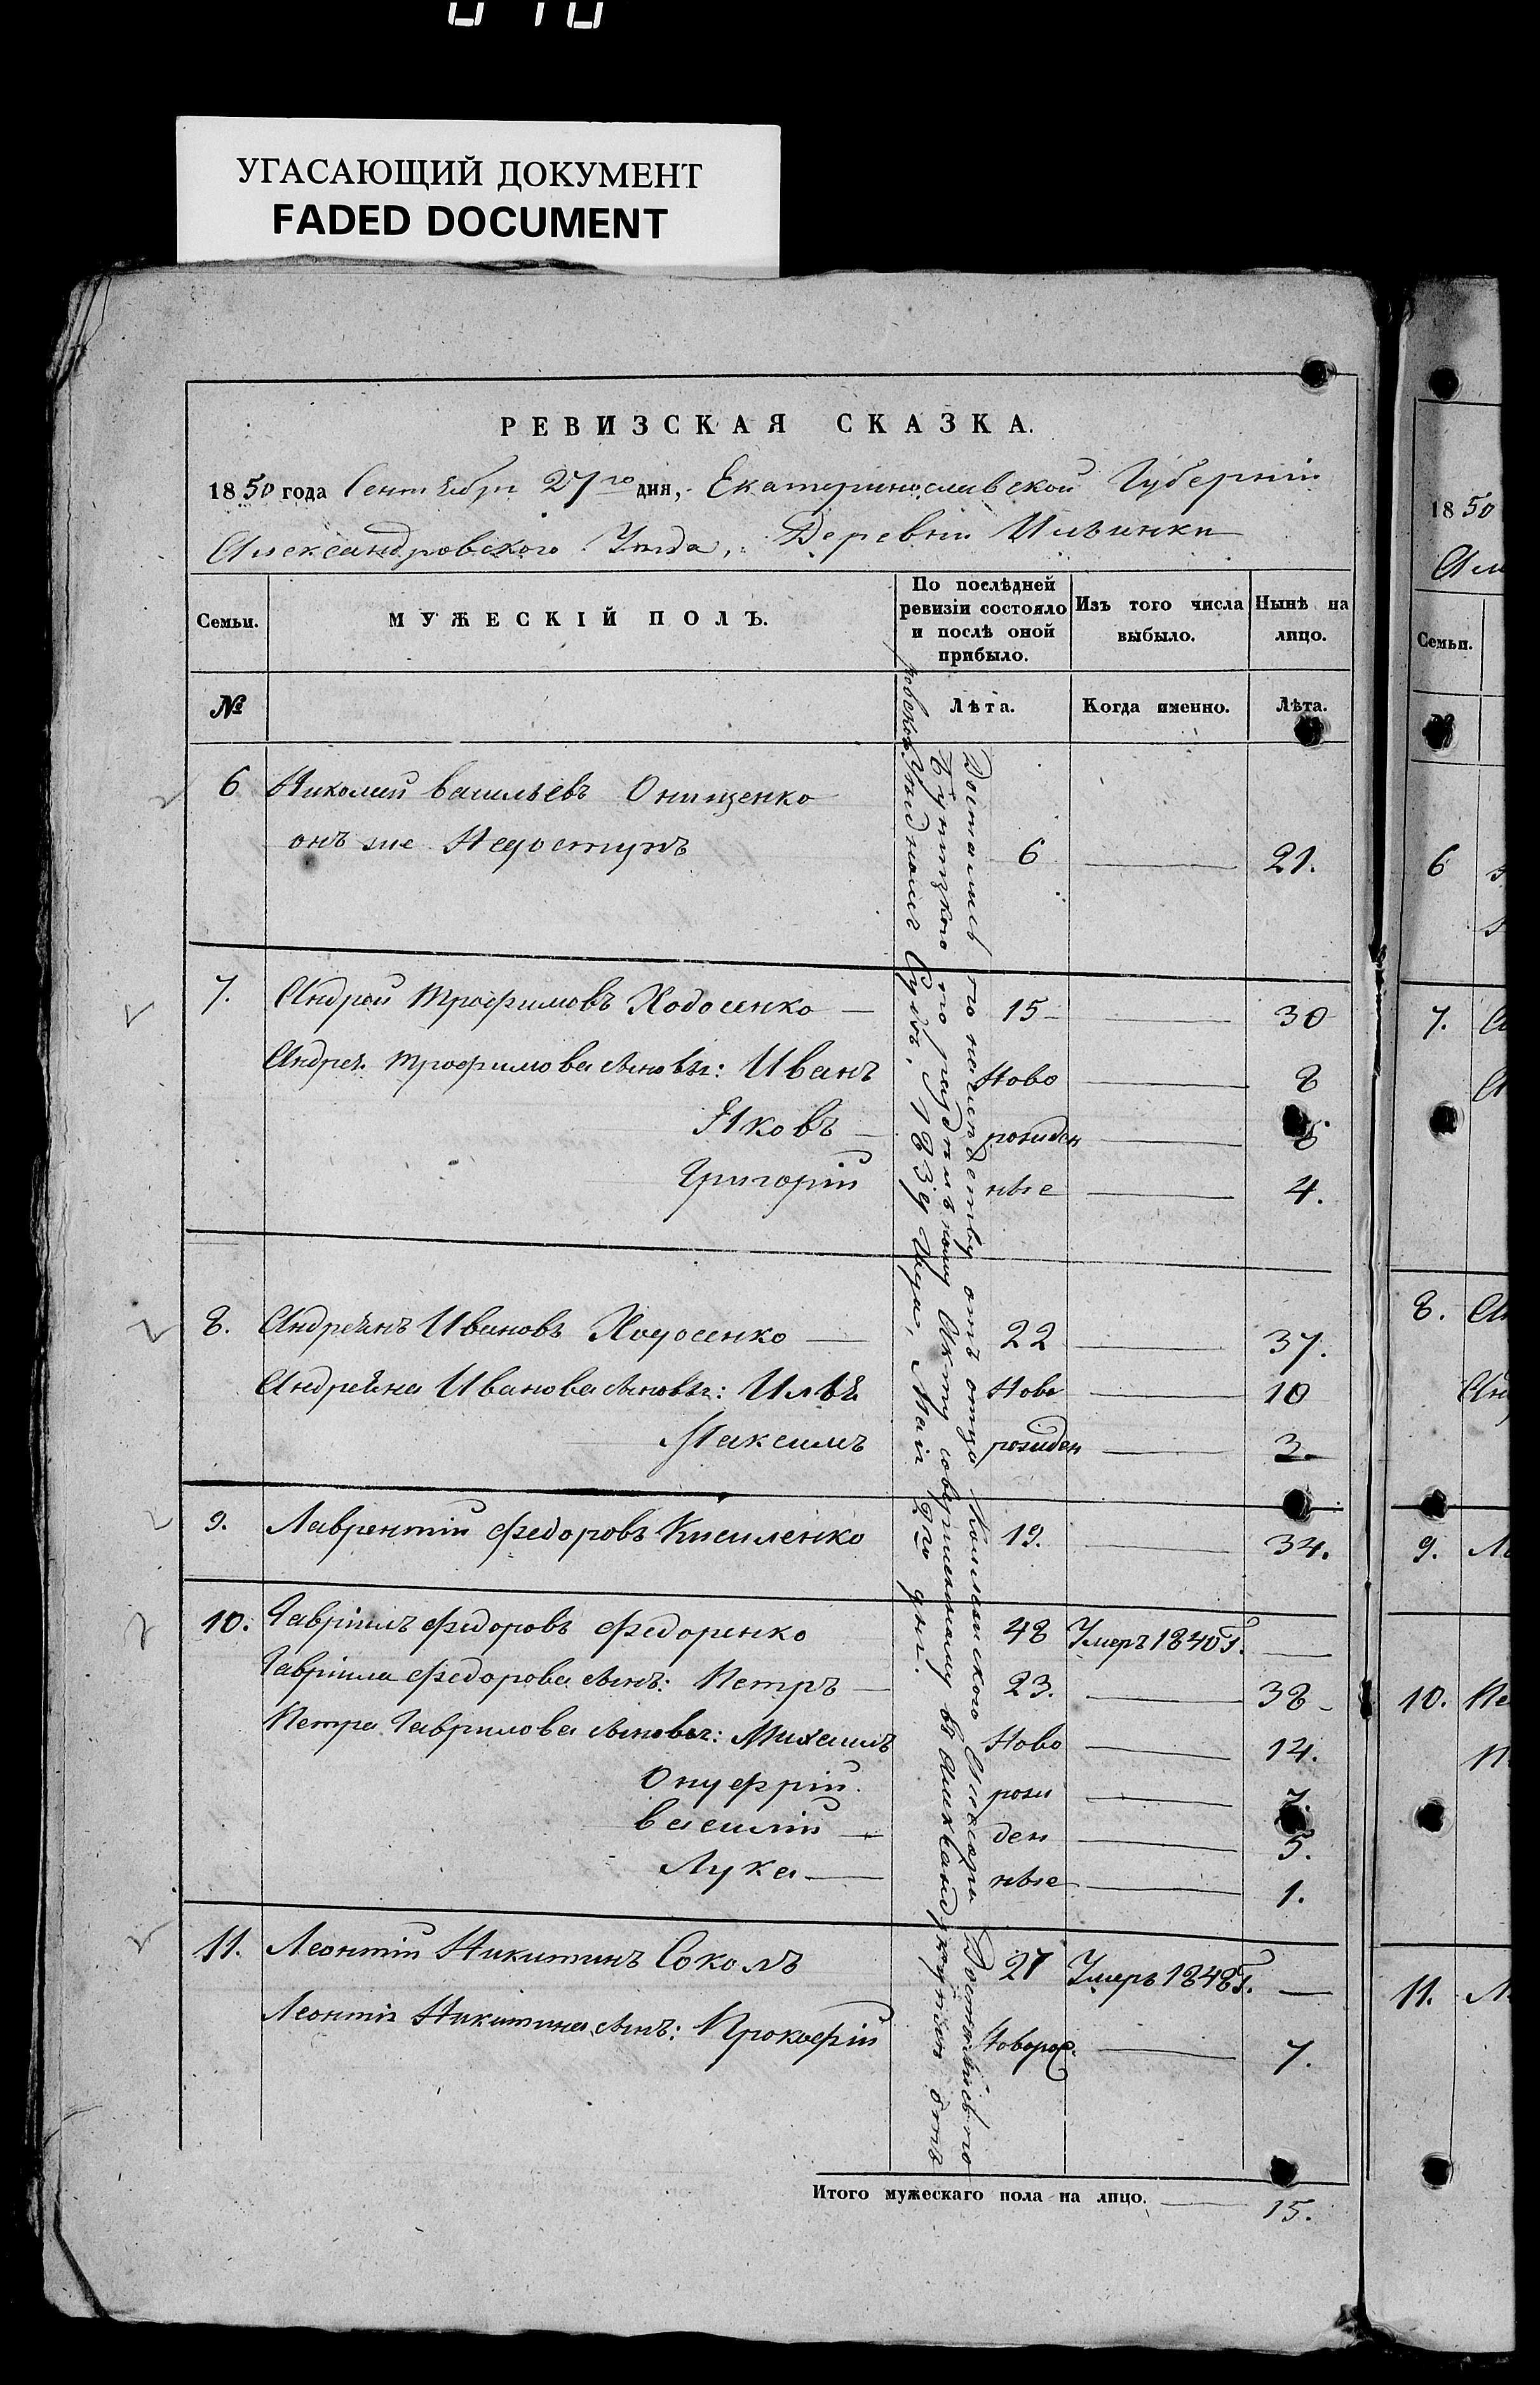 УГАСАЮЩИЙ ДОКУМЕНТ
FADED DOCUMENT
РЕВИЗСКАЯ СКАЗКА.
1850 года Сентября 27го дня, Екатеринославской Губерніи
Александровского Уѣзда, Деревни Ильинки
Семьи.
МУЖЕСКІЙ ПОЛЪ.
По послѣдней ревизіи состояло и послѣ оной прибыло.
Изъ того числа выбыло.
Нынѣ на лицо.
№
Лѣта.
Когда именно.
Лѣта.
6 Николай Васильевъ Онищенко
онъ же Недоступъ 6 21.
7. Андрей Трофимовъ Ходосенко 15 30
Андрея Трофимова сыновья: Иванъ Ново 8
Яковъ рожден
Григорій ные 4.
8. Андреянъ Ивановъ Ходосенко 22 37.
Андреяна Иванова сыновья: Илья Ново 10
Максимъ рожден 3.
9. Лаврентій Федоровъ Киселенко 19. 34.
10. Гавріилъ Федоровъ Федоренко 48 Умеръ 1840 г.
Гавріила Федорова сынъ: Петръ 23. 38
Петра Гаврилова сыновья: Михаилъ Ново 14.
Онуфрій рожи 7.
Василій ден 5.
Лука ные 1.
11. Леонтій Никитинъ Соколъ 27 Умеръ 1848 г.
Леонтія Никитина сынъ: Прокофій Новорож. 7.
Достались по наслѣдству отъ отца
по раздельному Акту совершенному въ Александ
ровскомъ Уѣздномъ Судѣ, 1839 года, Мая 2го дня.
Достались по
отъ
Итого мужескаго пола на лицо. 15.
1850
Семьи.
6
7.
8.
9.
10.
11.